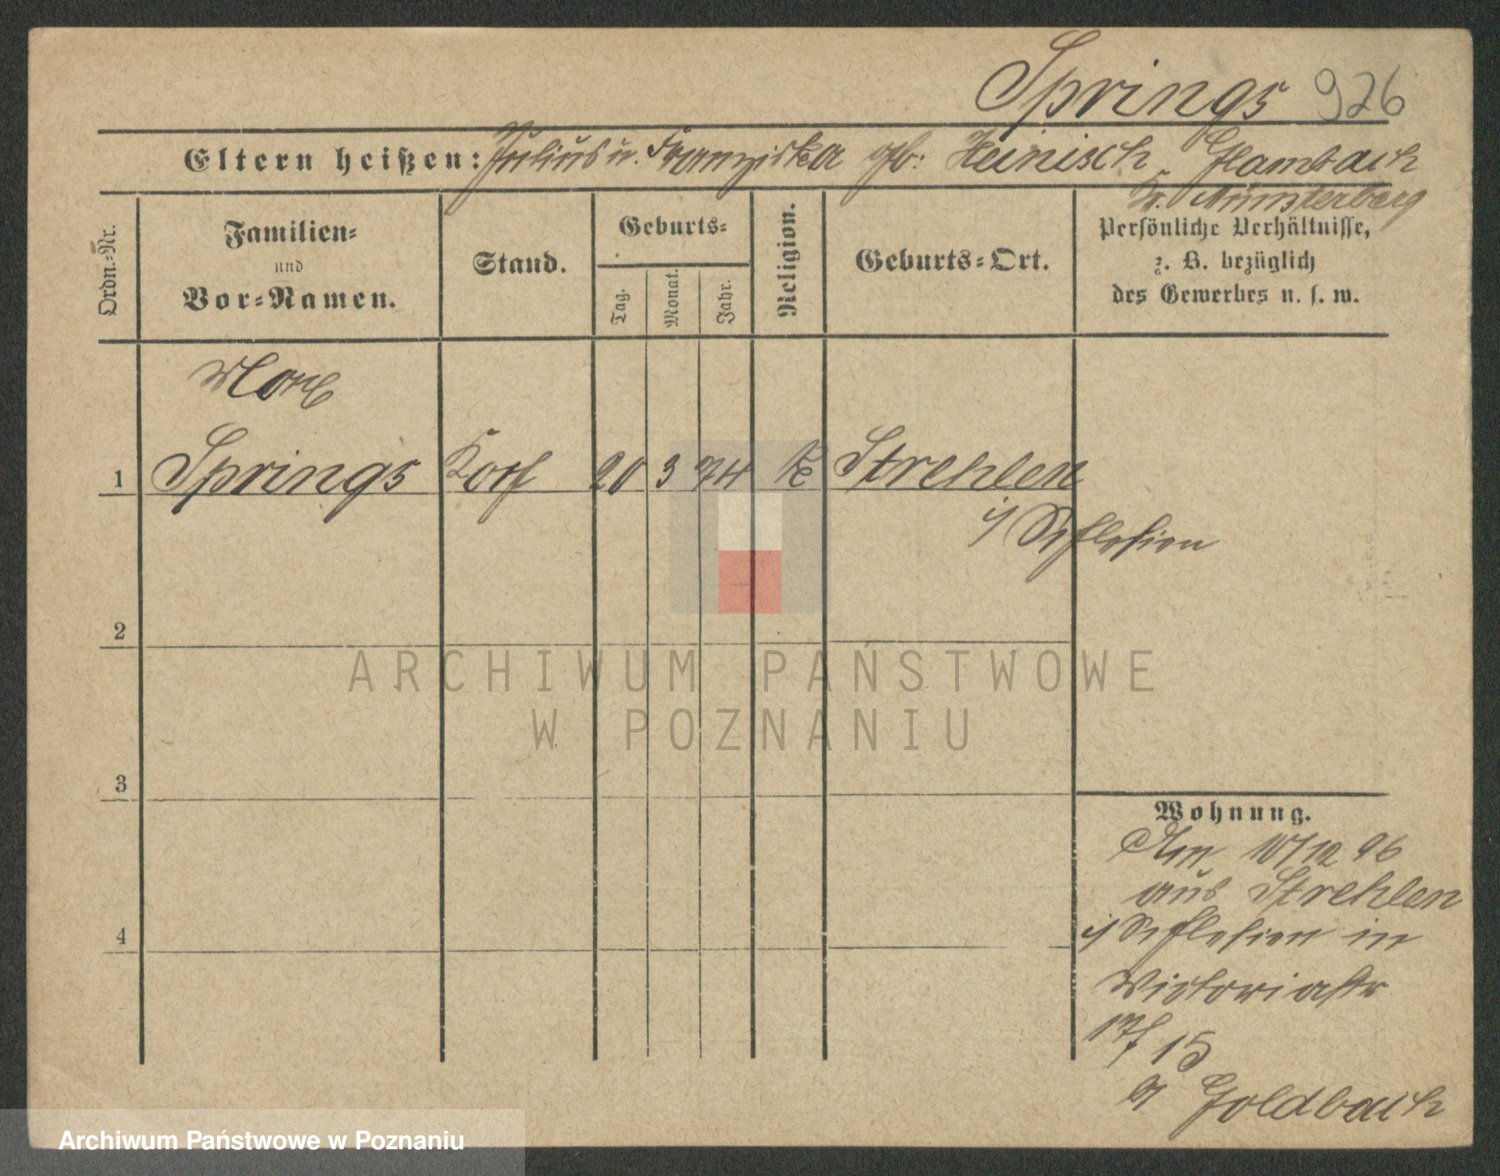 Springs 926
Eltern heißen: Julius u. Franziska geb: Heinisch, Glambach
Kr. Münsterberg
Ordn.-Nr.
Familien-
und
Vor-Namen.
Stand.
Geburts-
Tag.
Monat.
Jahr.
Religion.
Geburts-Ort.
Persönliche Verhältnisse,
z. B. bezüglich
des Gewerbes u. s. w.
Max
1 Springs 20 3 74 k Strehlen
i/ Schlesien
2
3
4
Wohnung.
Am 10/12 96
aus Strehlen
i/ Schlesien in
Victoriastr
15
Goldbach
ARCHIWUM PAŃSTWOWE
W POZNANIU
Archiwum Państwowe w Poznaniu